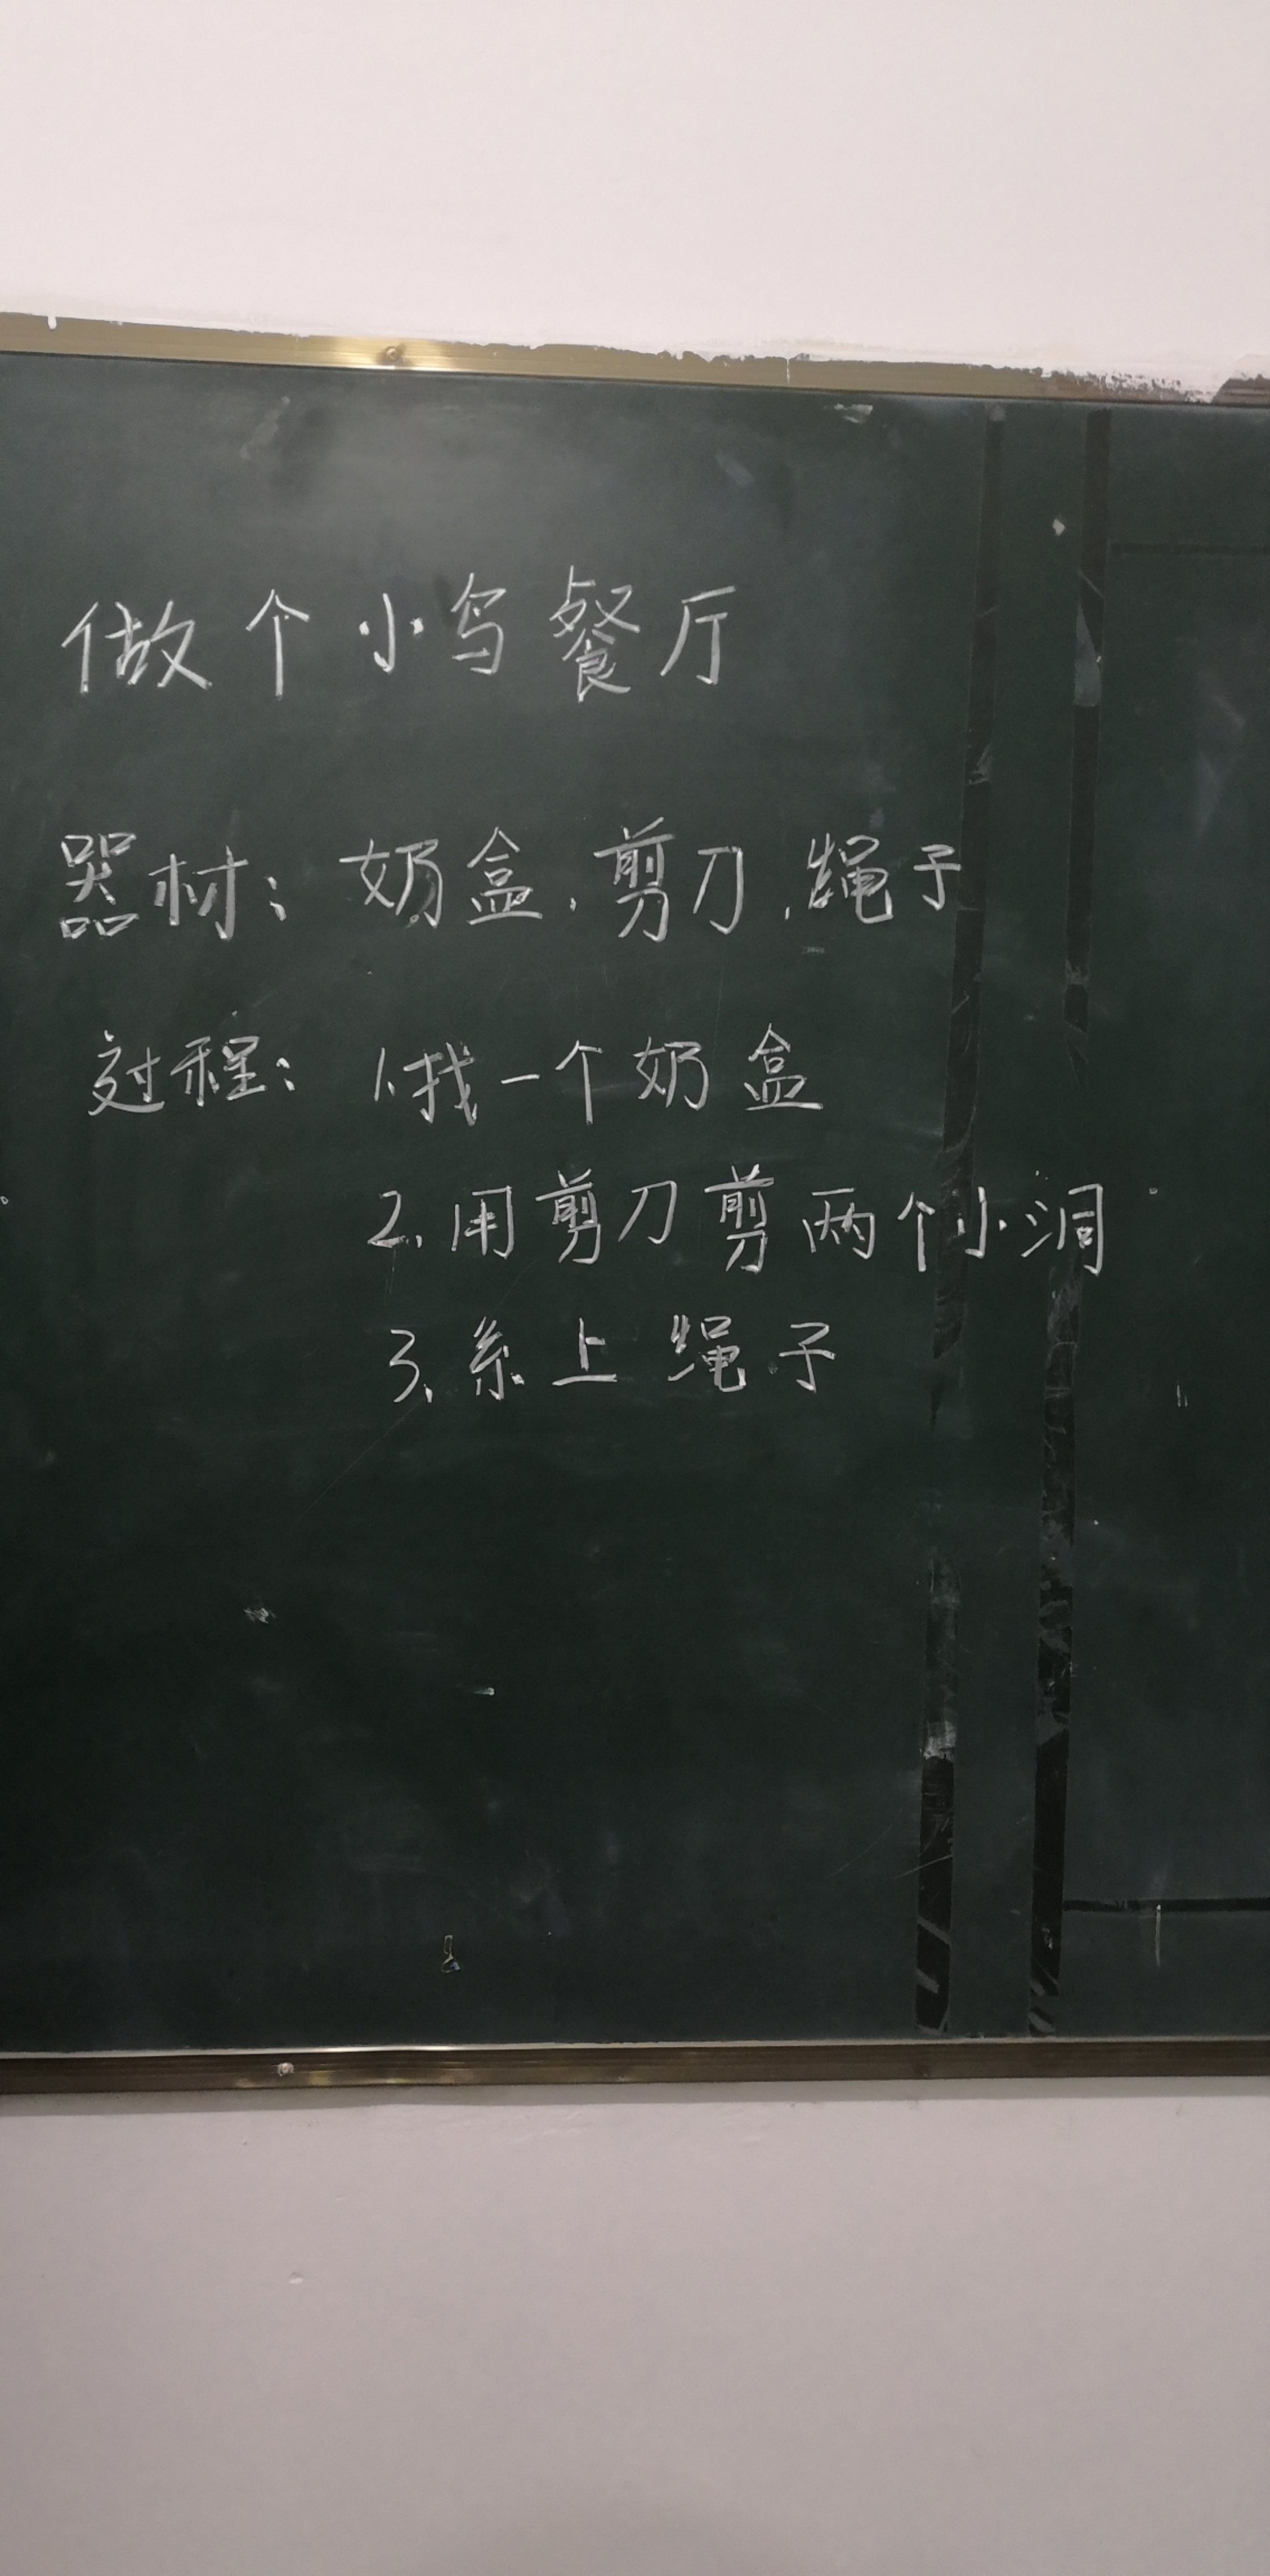 做个小鸟餐厅
器材：奶盒、剪刀、绳子
过程：1.找一个奶盒
2.用剪刀剪两个小洞
3.系上绳子